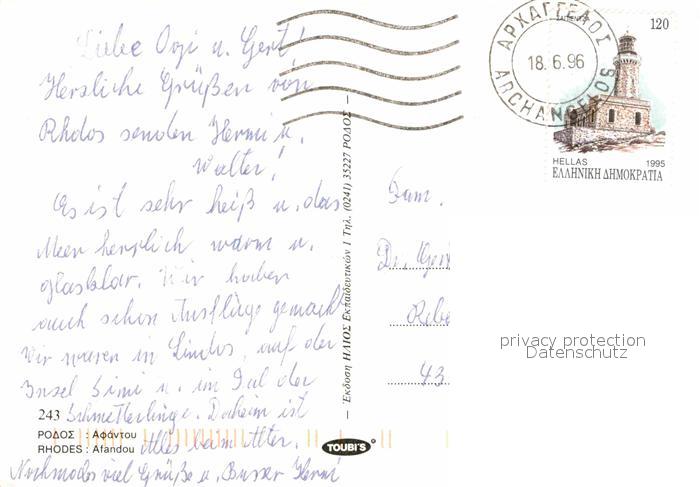 Liebe Ossi u. Gert!
Herzliche Grüßen von
Rhodos senden Hermi u.
Walter!
Es ist sehr heiß u. das
Meer herrlich warm u.
glasklar. Wir haben
auch schon Ausflüge gemacht
Wir waren in Lindos, auf der
Insel Simi u. im Tal der
Schmetterlinge. Daheim ist
Alles beim Alten.
Nochmals viel Grüße u. Busserl Hermi
243
ΡΟΔΟΣ : Αφάντου
RHODES : Afandou
Έκδοση ΗΛΙΟΣ Εκπαιδευτικών 1 Τηλ. (0241) 35227 ΡΟΔΟΣ
TOUBI'S
ΑΡΧΑΓΓΕΛΟΣ
18.6.96
ARCHANGELOS
120
HELLAS 1995
ΕΛΛΗΝΙΚΗ ΔΗΜΟΚΡΑΤΙΑ
Fam.
43
privacy protection
Datenschutz